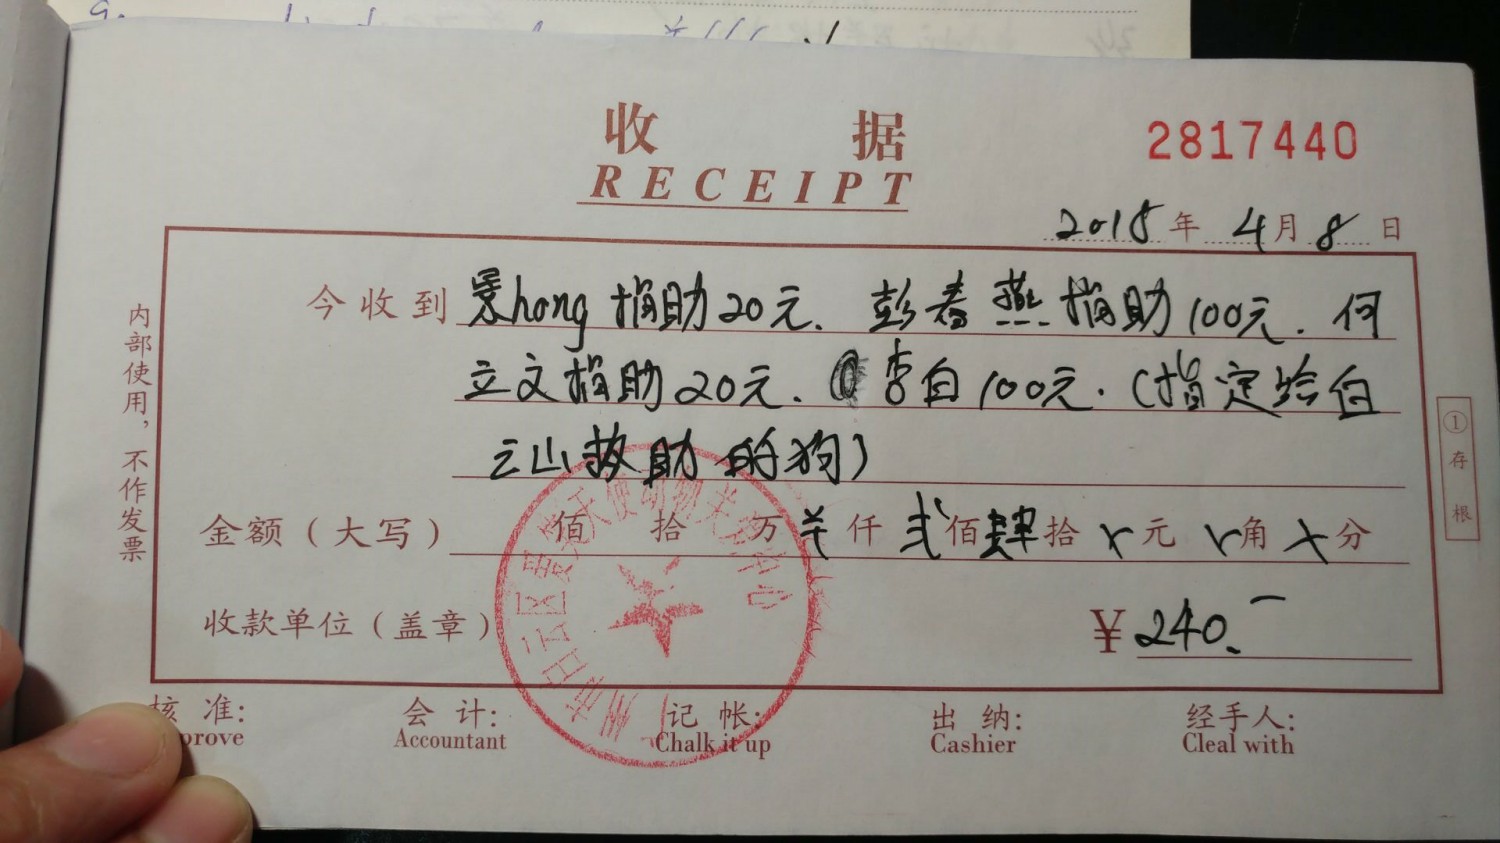 收 据
RECEIPT
2817440
2018 年 4 月 8 日
今收到 景hong 捐助20元、彭春燕捐助100元、何
立文捐助20元、李白100元.(指定给白
云山救助的狗)
金额(大写) 佰 拾 万 仟 贰佰肆拾 元 角 分
收款单位(盖章)
¥240.-
核 准: 会 计: 记 帐: 出 纳: 经手人:
prove Accountant Chalk it up Cashier Cleal with
内部使用,不作发票
①存根